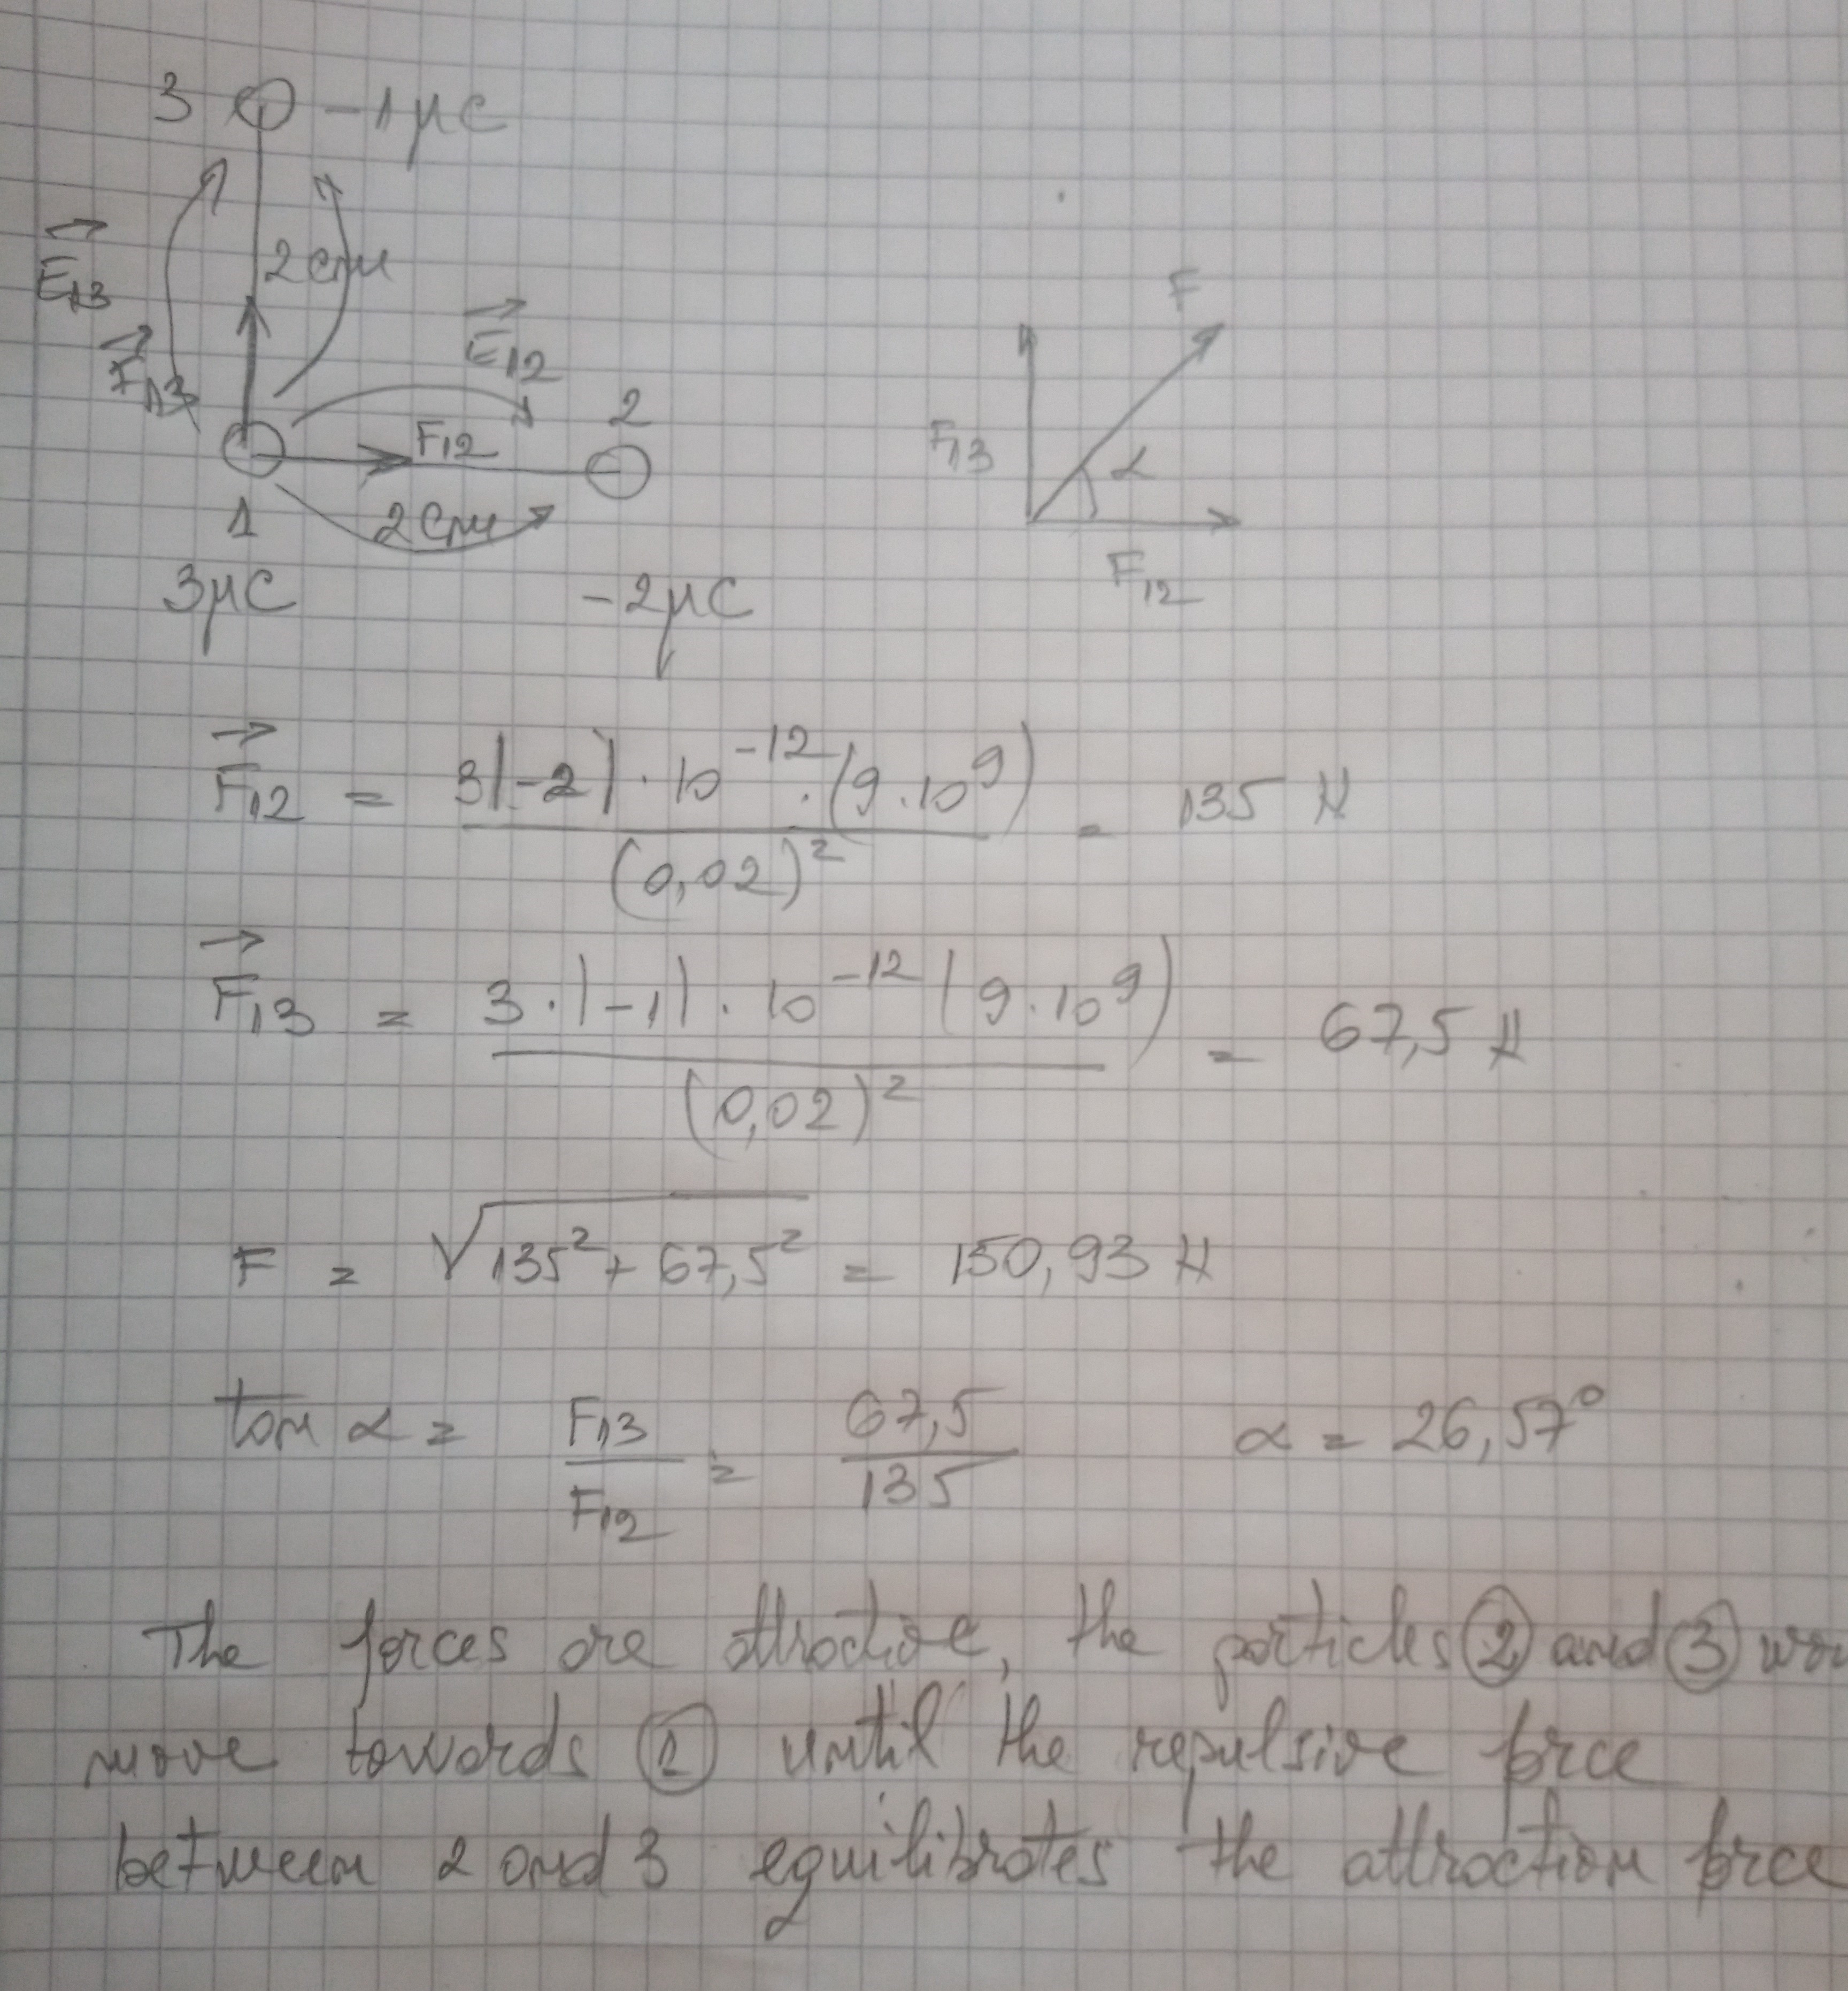 3 -1μC
E⃗13
2 cm
F⃗13
E⃗12
2
F12
1
2 cm
3μC
-2μC
F
F13
α
F12
F⃗12 = 3|-2|·10^-12·(9·10^9) / (0,02)^2 = 135 N
F⃗13 = 3·|-1|·10^-12 (9·10^9) / (0,02)^2 = 67,5 N
F = √(135^2 + 67,5^2) = 150,93 N
tan α = F13 / F12 = 67,5 / 135 α = 26,57°
The forces are attractive, the particles ② and ③
move towards ① until the repulsive force
between 2 and 3 equilibrates the attraction force